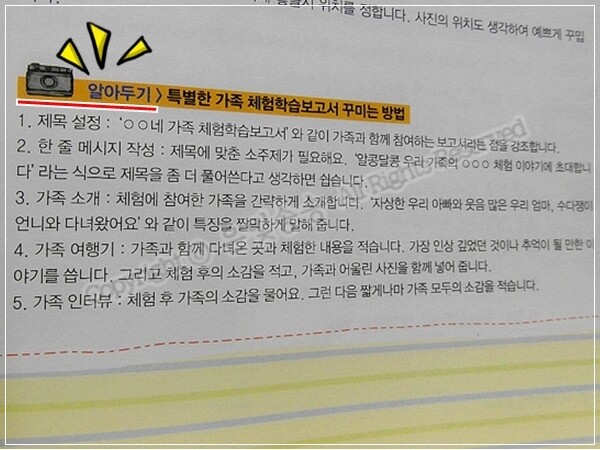 위치를 정합니다. 사진의 위치도 생각하여 예쁘게 꾸밉
알아두기 > 특별한 가족 체험학습보고서 꾸미는 방법
1. 제목 설정 : ‘○○네 가족 체험학습보고서’와 같이 가족과 함께 참여하는 보고서라는 점을 강조합니다.
2. 한 줄 메시지 작성 : 제목에 맞춘 소주제가 필요해요. ‘알콩달콩 우리 가족의 ○○○ 체험 이야기에 초대합니
다’라는 식으로 제목을 좀 더 풀어쓴다고 생각하면 쉽습니다.
3. 가족 소개 : 체험에 참여한 가족을 간략하게 소개합니다. ‘자상한 우리 아빠와 웃음 많은 우리 엄마, 수다쟁이
언니와 다녀왔어요’와 같이 특징을 짤막하게 말해 줍니다.
4. 가족 여행기 : 가족과 함께 다녀온 곳과 체험한 내용을 적습니다. 가장 인상 깊었던 것이나 추억이 될 만한 이
야기를 씁니다. 그리고 체험 후의 소감을 적고, 가족과 어울린 사진을 함께 넣어 줍니다.
5. 가족 인터뷰 : 체험 후 가족의 소감을 물어요. 그런 다음 짧게나마 가족 모두의 소감을 적습니다.
Copyright © All Rights Reserved